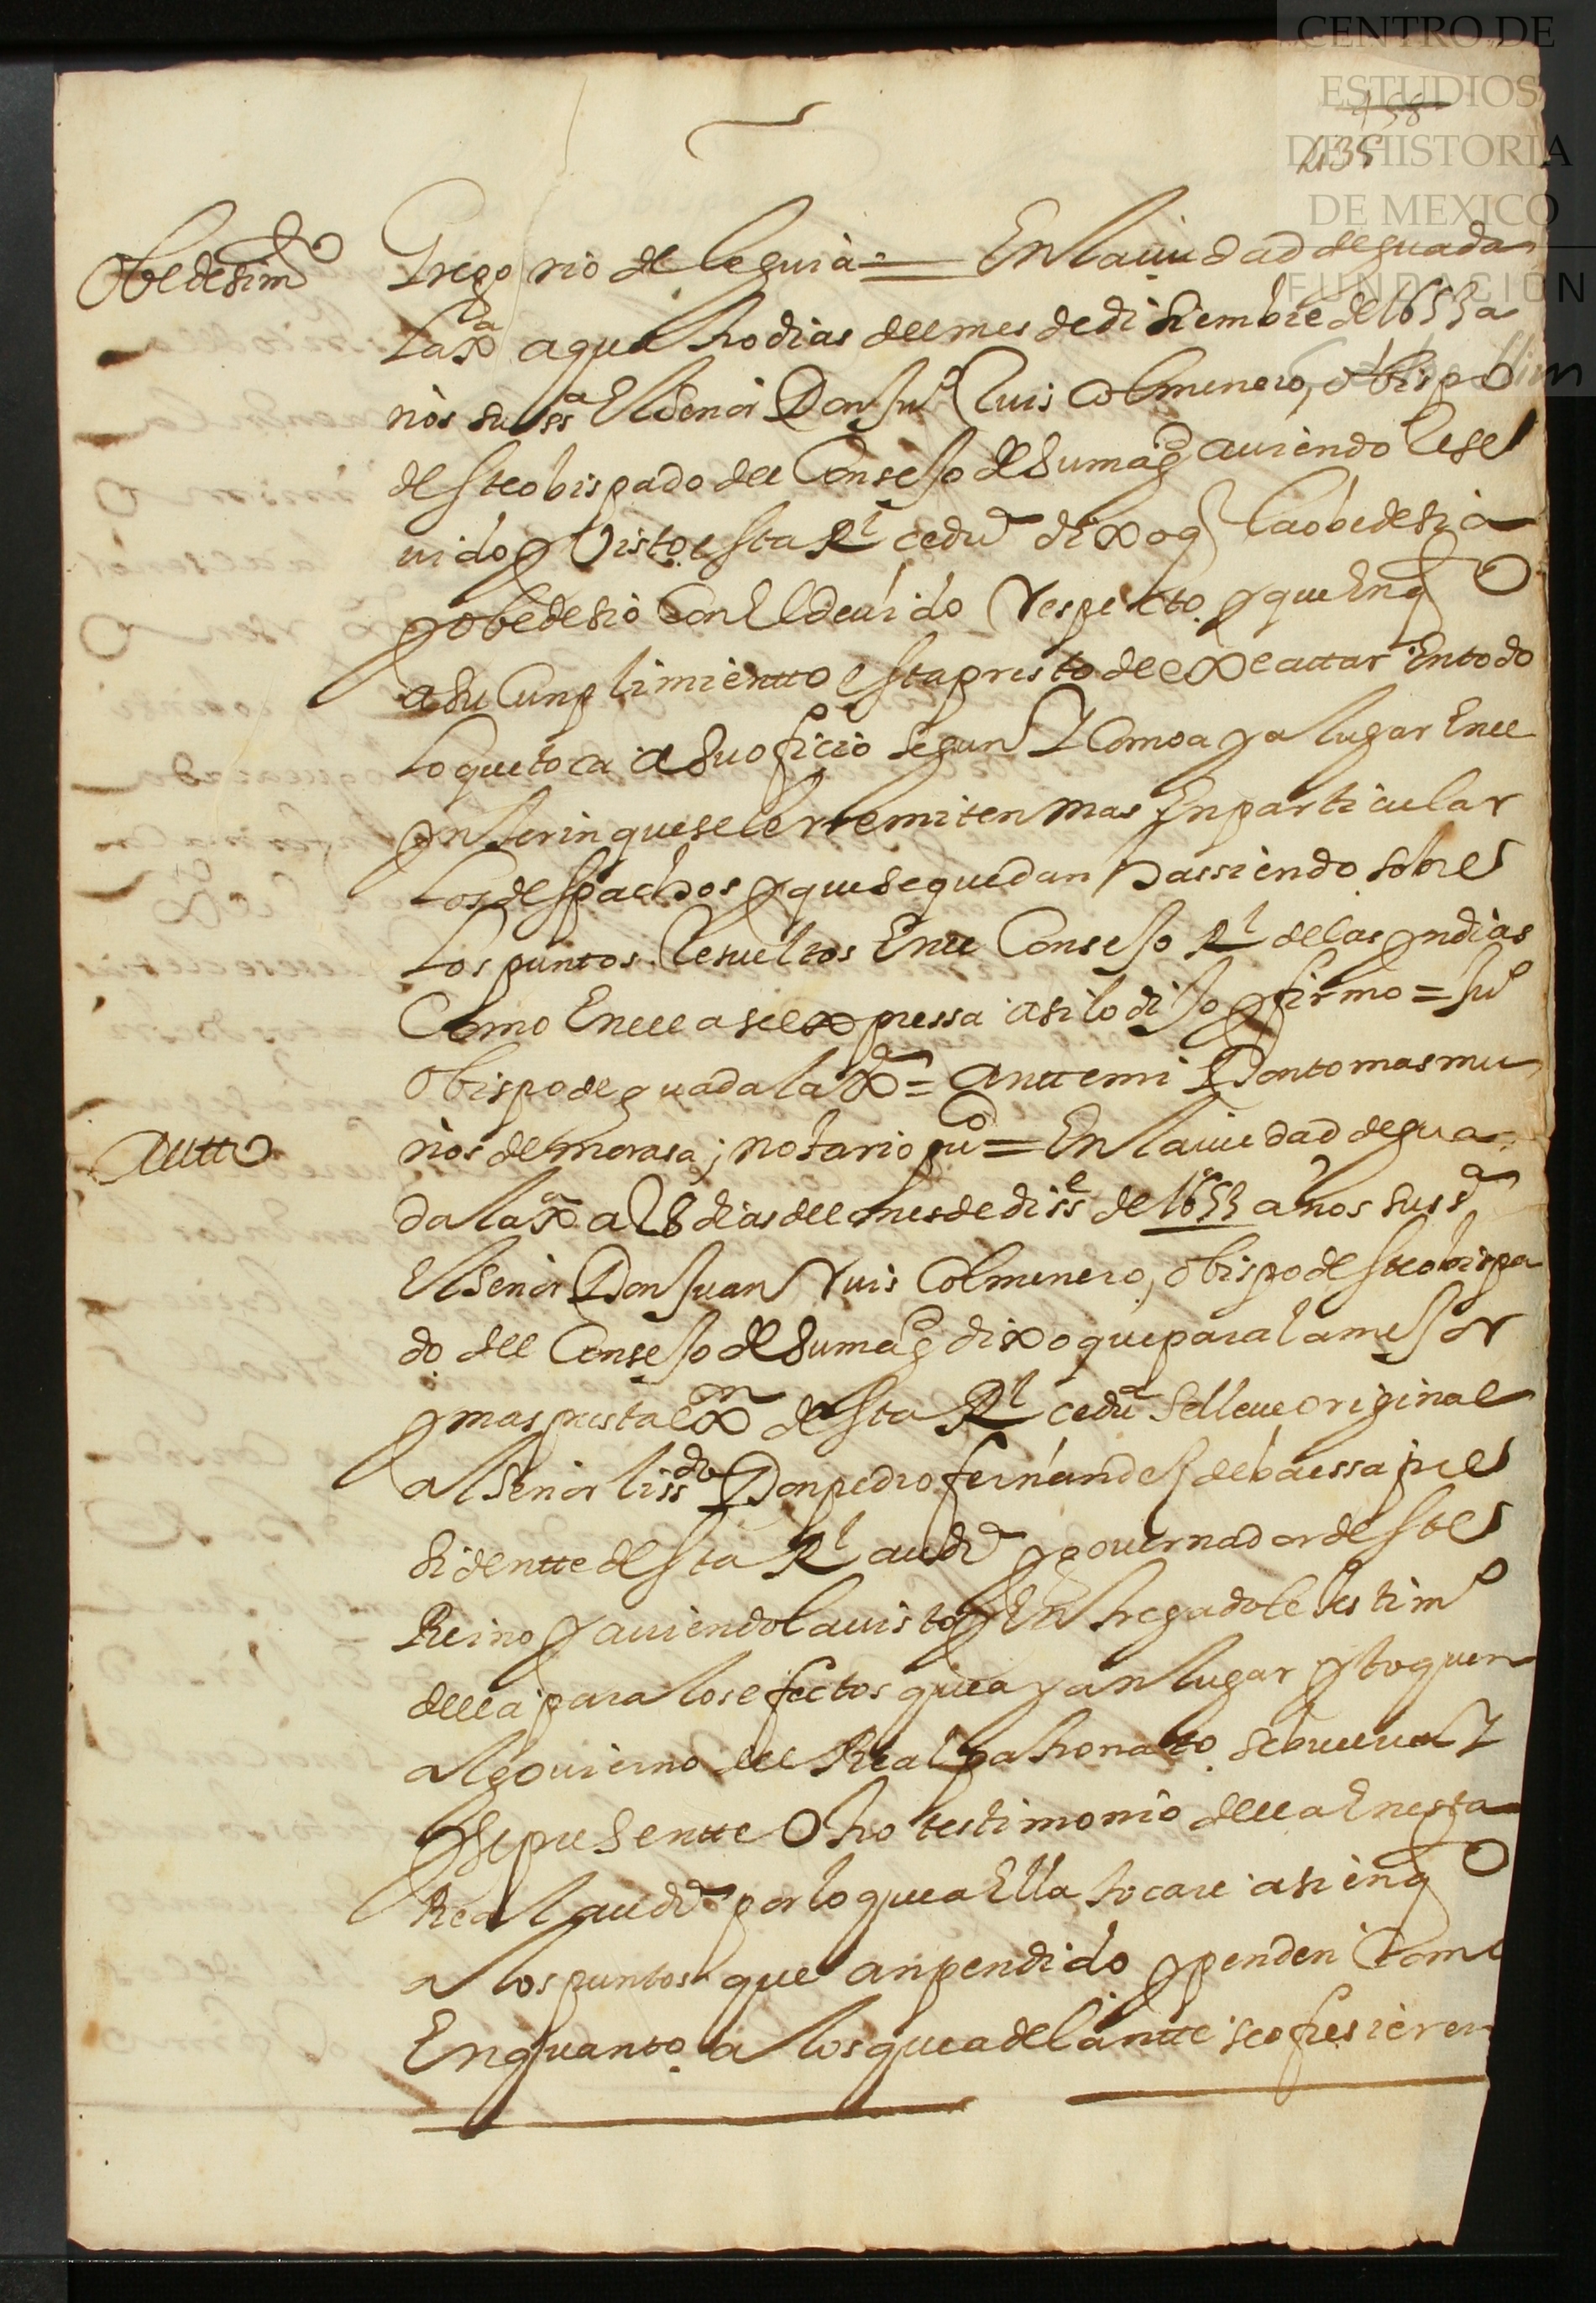 CENTRO DE
ESTUDIOS
DE HISTORIA
DE MEXICO
FUNDACIÓN
458
435
Obedesimto
Gregorio de leguia = En la ciudad de guada
laxa a quatro dias del mes de disiembre de 1653 a
nos su ssa El Señor Don Juo Ruis Colmenero, obispo
deste obispado del Consejo de Su magd auiendo rese
uido y Visto esta Rl cedua dixo q la obedesia
y obedesio Con El deuido respecto y que En qto
a Su Cunplimientto esta presto de exeCuttar En todo
lo que toca a Su oficio segun Y Como aya lugar En el
ynterin que se le rremiten mas En particular
los despachos y que se quedan hassiendo sobre
los puntos resueltos En el Consejo Rl de las yndias
Como En ella se expressa asi lo dijo y firmo = Juo
Obispo de guadalaxa = antte mi Don tomas mu
nos de morasa; notario puco = En la ciudad de gua
dalaxa a 28 dias del mes de disse de 1653 años su ssa
El Senor Don Juan Ruis Colmenero, obispo deste obispa
do del Consejo de Su magd dixo que para la mejor
y mas presta exon desta Rl cedua se lleue original
al Senor lissdo Don pedro fernandes de baessa pre
sidentte desta Rl auda y gouernador deste
Reino y auiendola uisto y Entregadole testimo
della para los efectos que ayan lugar y toquen
al gouierno del Real patronatto se buelua Y
se presentte Otro testimonio della En esta
Real auda por lo que a Ella tocare asi en qto
a los puntos que an pendido y penden Como
En quanto a los que adelantte se ofresieren
Autto